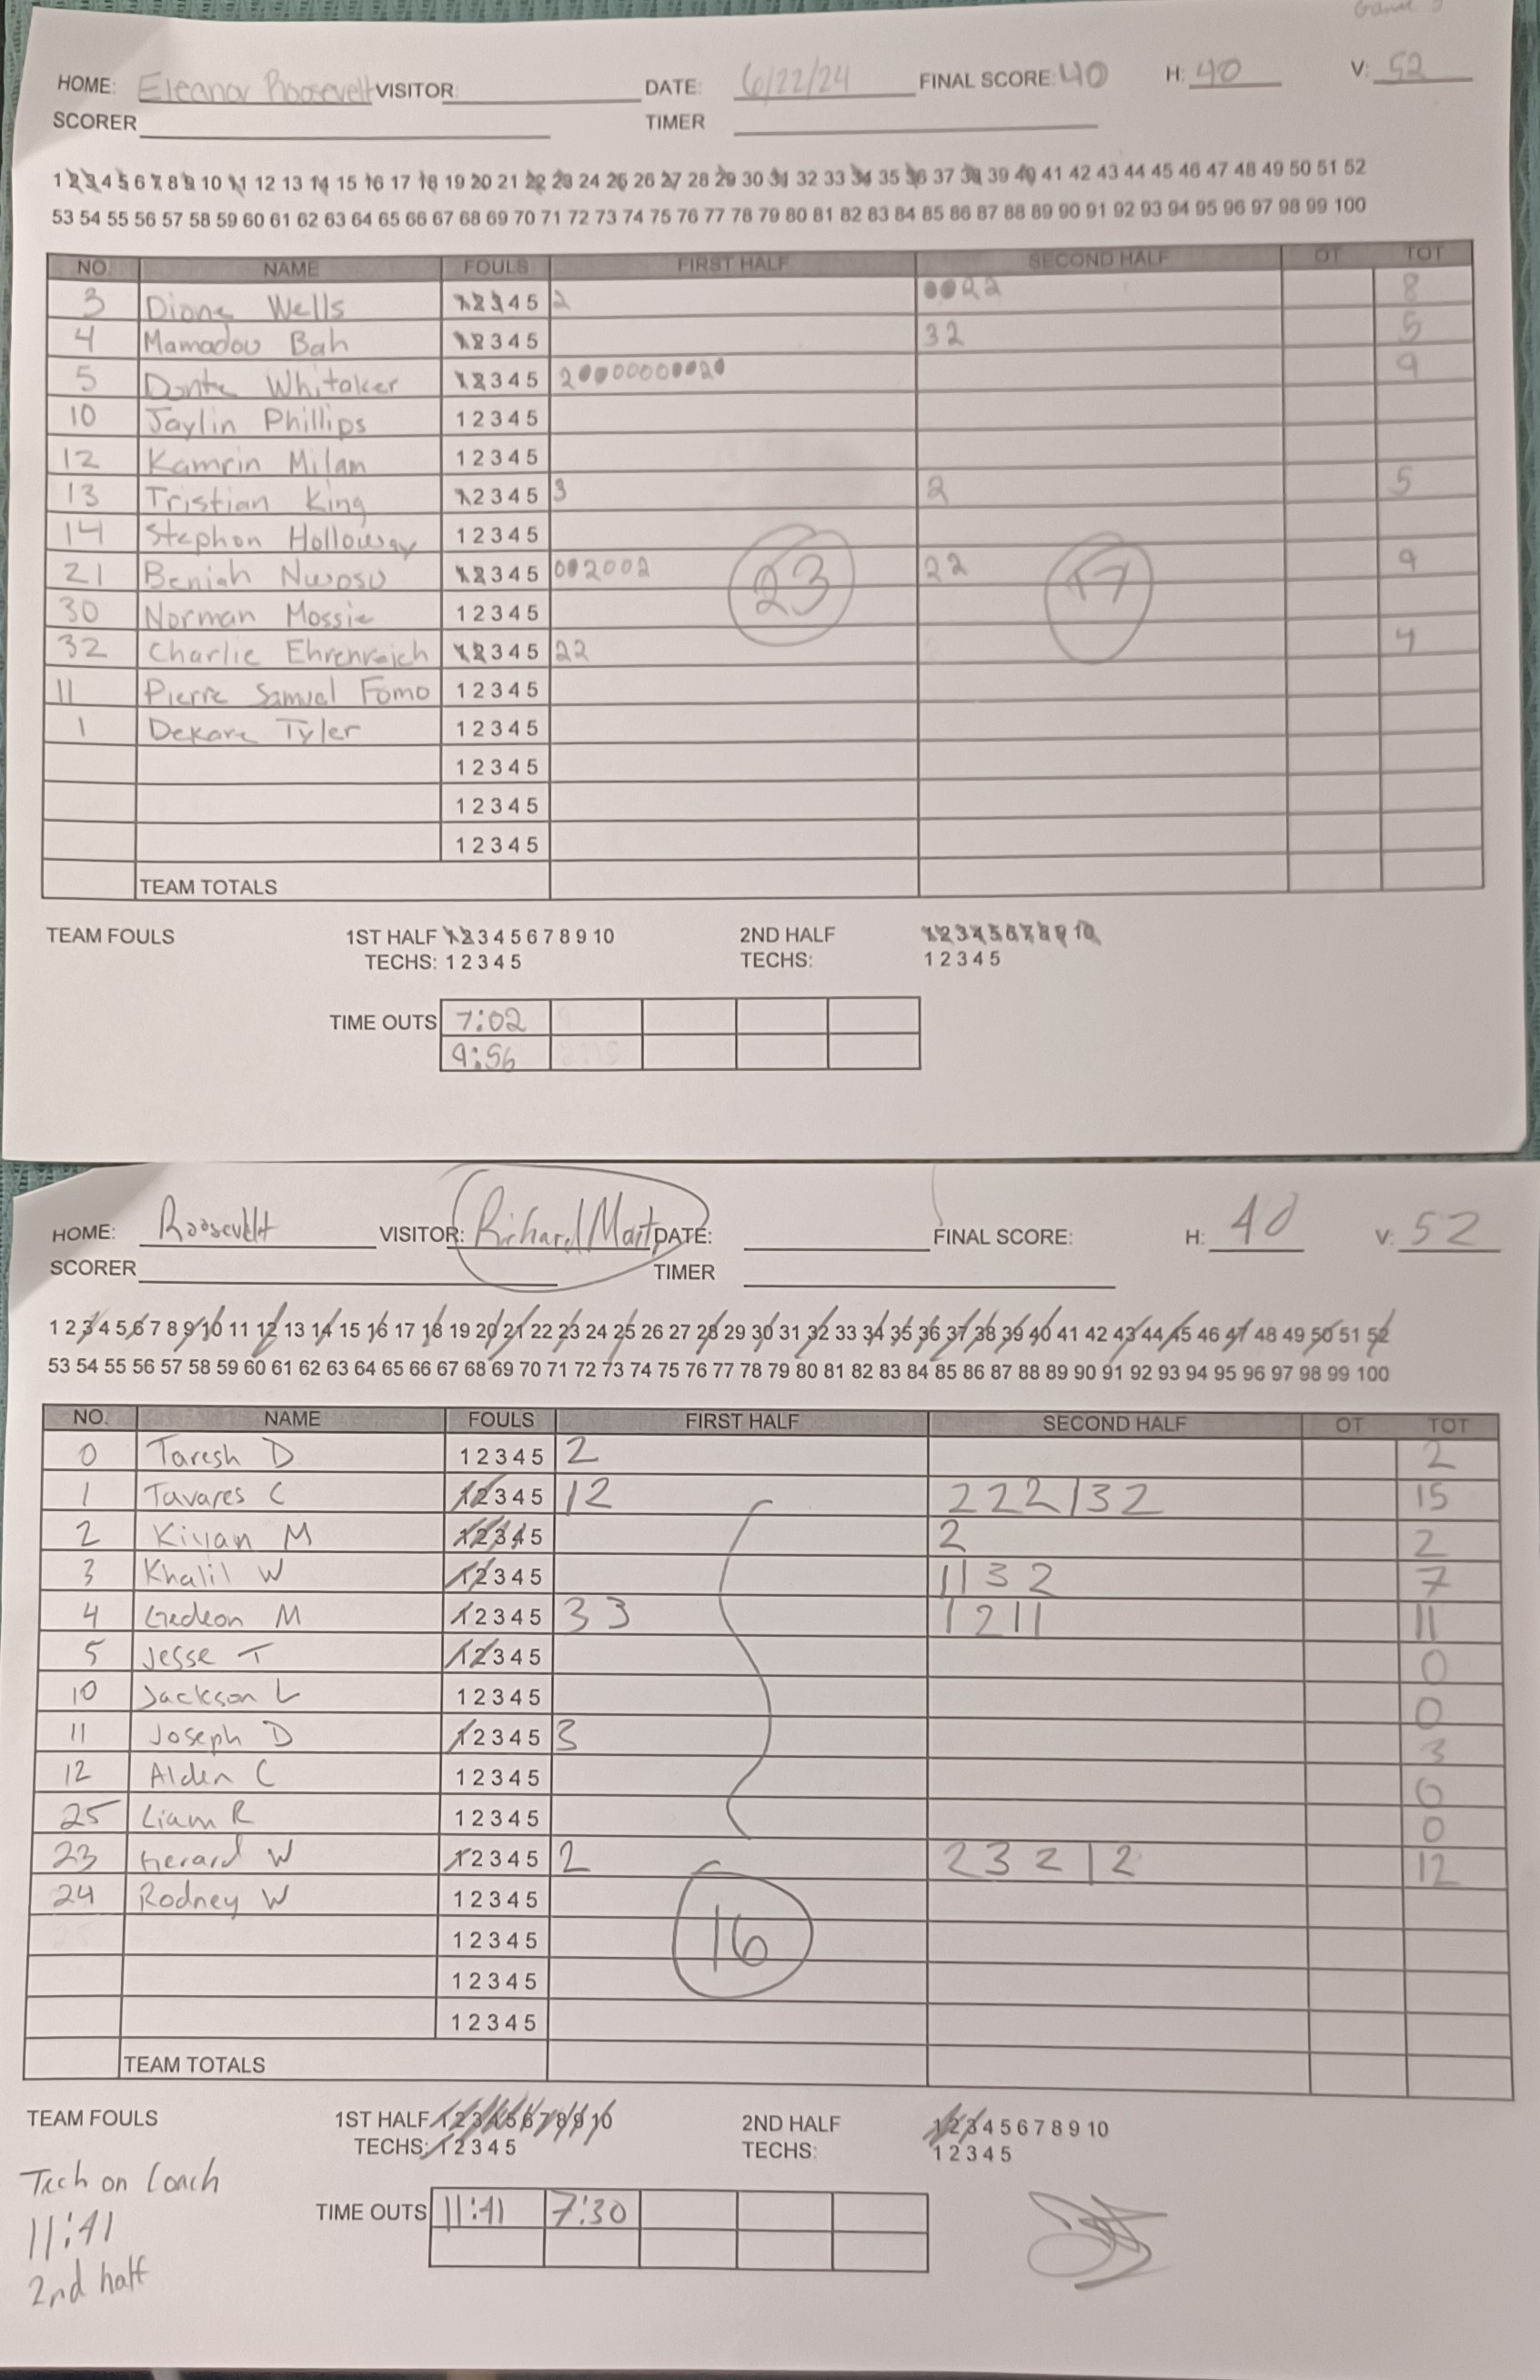 Game
HOME: Eleanor Roosevelt VISITOR: DATE: 6/22/24 FINAL SCORE: 40 H: 40 V: 52
SCORER TIMER
1 2 3 4 5 6 7 8 9 10 11 12 13 14 15 16 17 18 19 20 21 22 23 24 25 26 27 28 29 30 31 32 33 34 35 36 37 38 39 40 41 42 43 44 45 46 47 48 49 50 51 52
53 54 55 56 57 58 59 60 61 62 63 64 65 66 67 68 69 70 71 72 73 74 75 76 77 78 79 80 81 82 83 84 85 86 87 88 89 90 91 92 93 94 95 96 97 98 99 100
NO. NAME FOULS FIRST HALF SECOND HALF OT TOT
3 Dione Wells 1 2 3 4 5 2 22 8
4 Mamadou Bah 1 2 3 4 5 32 5
5 Donte Whitaker 1 2 3 4 5 2 2 9
10 Jaylin Phillips 1 2 3 4 5
12 Kamrin Milam 1 2 3 4 5
13 Tristian King 1 2 3 4 5 3 2 5
14 Stephon Holloway 1 2 3 4 5
21 Beniah Nwosu 1 2 3 4 5 002002 22 9
30 Norman Mossie 1 2 3 4 5
32 Charlie Ehrenreich 1 2 3 4 5 22 4
11 Pierre Samual Fomo 1 2 3 4 5
1 Dekare Tyler 1 2 3 4 5
23 17
1 2 3 4 5
1 2 3 4 5
1 2 3 4 5
TEAM TOTALS
TEAM FOULS 1ST HALF 1 2 3 4 5 6 7 8 9 10 2ND HALF 1 2 3 4 5 6 7 8 9 10
TECHS: 1 2 3 4 5 TECHS: 1 2 3 4 5
TIME OUTS 7:02
9:56
HOME: Roosevelt VISITOR: Richard Mont DATE: FINAL SCORE: H: 40 V: 52
SCORER TIMER
1 2 3 4 5 6 7 8 9 10 11 12 13 14 15 16 17 18 19 20 21 22 23 24 25 26 27 28 29 30 31 32 33 34 35 36 37 38 39 40 41 42 43 44 45 46 47 48 49 50 51 52
53 54 55 56 57 58 59 60 61 62 63 64 65 66 67 68 69 70 71 72 73 74 75 76 77 78 79 80 81 82 83 84 85 86 87 88 89 90 91 92 93 94 95 96 97 98 99 100
NO. NAME FOULS FIRST HALF SECOND HALF OT TOT
0 Taresh D 1 2 3 4 5 2 2
1 Tavares C 1 2 3 4 5 12 222132 15
2 Kiyan M 1 2 3 4 5 2 2
3 Khalil W 1 2 3 4 5 1132 7
4 Gedeon M 1 2 3 4 5 33 1211 11
5 Jesse T 1 2 3 4 5 0
10 Jackson L 1 2 3 4 5 0
11 Joseph D 1 2 3 4 5 3 3
12 Alden C 1 2 3 4 5 0
25 Liam R 1 2 3 4 5 0
23 Gerard W 1 2 3 4 5 2 23212 12
24 Rodney W 1 2 3 4 5
16
1 2 3 4 5
1 2 3 4 5
1 2 3 4 5
TEAM TOTALS
TEAM FOULS 1ST HALF 1 2 3 4 5 6 7 8 9 10 2ND HALF 1 2 3 4 5 6 7 8 9 10
TECHS: 1 2 3 4 5 TECHS: 1 2 3 4 5
Tech on Coach
11:41
2nd half
TIME OUTS 11:41 7:30